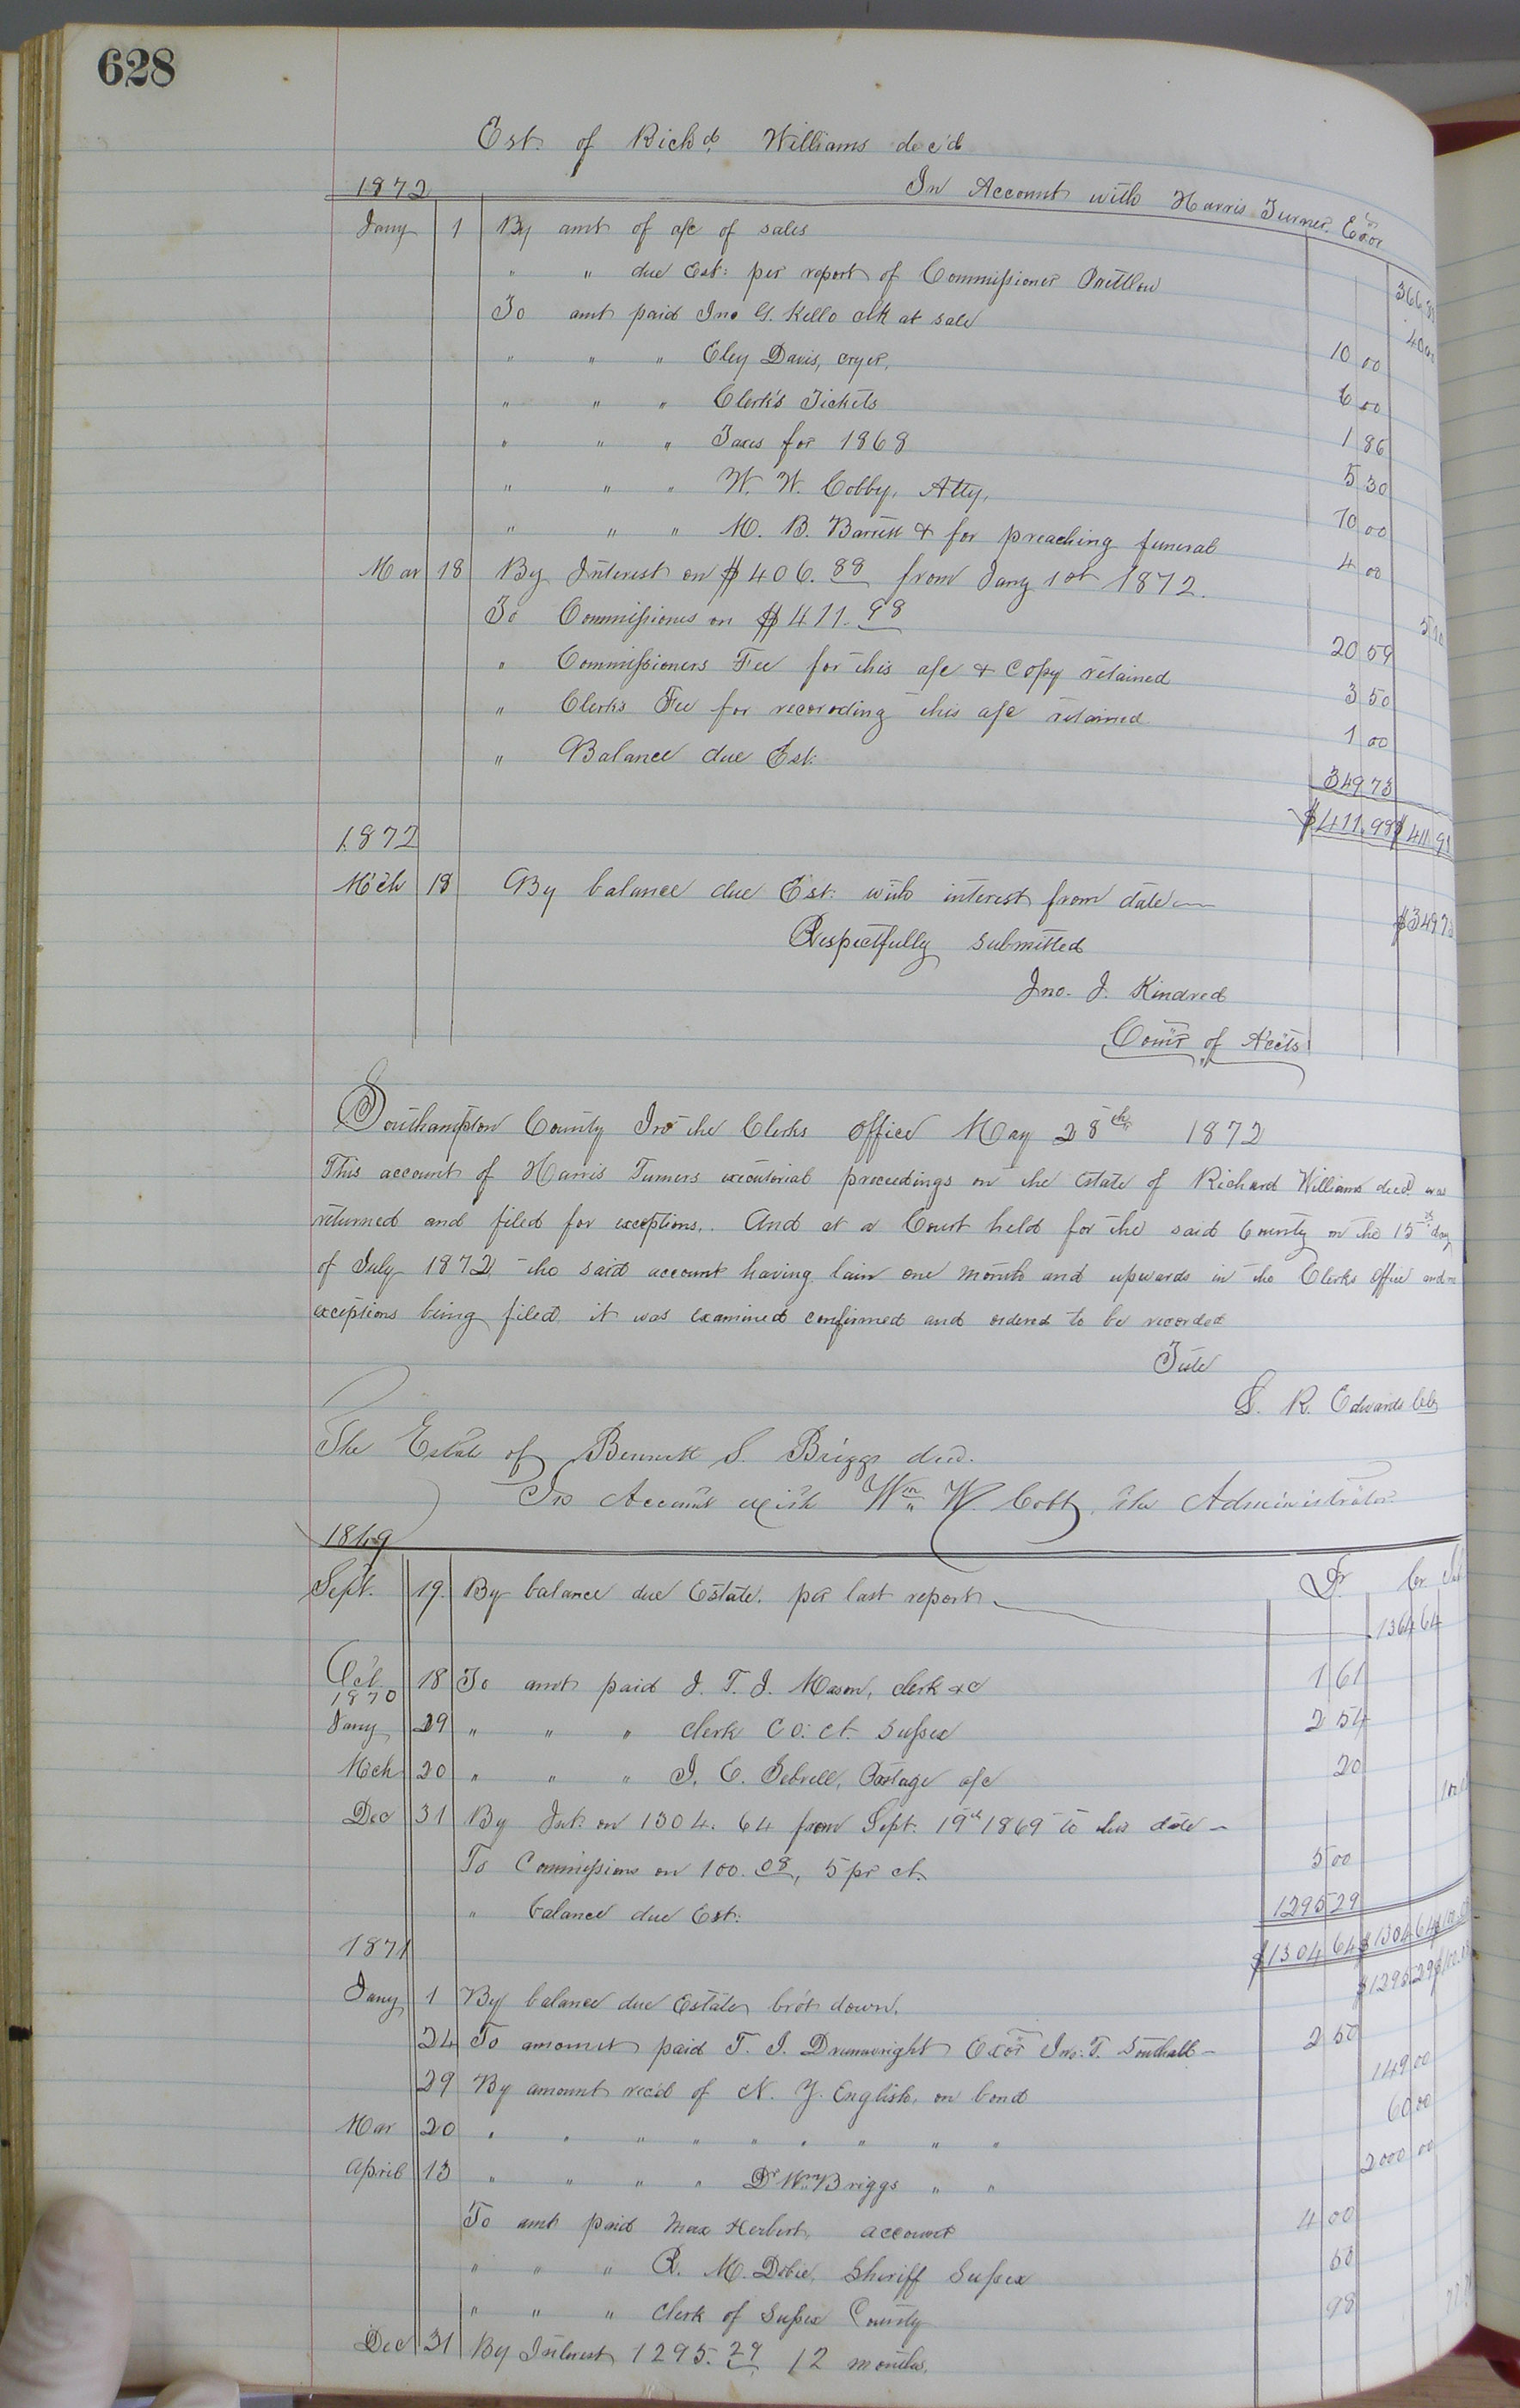 628
Est. of Richd. Williams dec'd
In Account with Harris Turner Exor
1872
Jany 1 By amt of a/c of sales 366 88
" " due Est: per report of Commissioner Pretlow 40 00
To amt paid Jno G. Kello clk at sale 10 00
" " " Eley Davis, cryer, 6 00
" " " Clerk's Tickets 1 86
" " " Taxes for 1868 5 30
" " " W. W. Cobb, Atty, 10 00
" " " M. B. Barrett & for preaching funeral 4 00
Mar 18 By Interest on $406.88 from Jany 1st 1872. 5 10
To Commissions on $411.98 20 59
" Commissioners Fee for this a/c & copy retained 3 50
" Clerks Fee for recording this a/c retained 1 00
" Balance due Est. 349 73
$411.98 $411.98
1872
M'ch 18 By balance due Est. with interest from date $349 73
Respectfully submitted
Jno. J. Kindred
Com'r of Acc'ts
Southampton County In the Clerks office May 28th 1872
This account of Harris Turners executorial proceedings on the Estate of Richard Williams decd. was
returned and filed for exceptions. And at a Court held for the said County on the 15th day
of July 1872, the said account having lain one month and upwards in the Clerks office and no
exceptions being filed, it was examined confirmed and ordered to be recorded
Teste
L. R. Edwards Clk
The Estate of Bennett S. Briggs decd.
In Account with Wm W. Cobb, the Administrator
1869 Dr Cr Int
Sept. 19. By balance due Estate, per last report 1304 64
Oct. 18 To amt paid J. T. J. Mason, clerk &c 1 61
1870
Jany 29 " " " clerk Co: ct. Sussex 2 54
Mch 20 " " " J. E. Sebrell, Postage a/c 20
Dec 31 By Int. on 1304.64 from Sept. 19th 1869 to this date
To Commissions on 100.08, 5 pr ct. 5 00
" balance due Est: 1295 29
$1304 64 $1304 64
1871
Jany 1 By balance due Estate bro't down. $1295 29
24 To amount paid T. J. Drumwright Exor Jno: T. Southall 2 50
29 By amount rec'd of N. Y. English, on bond 149 00
Mar 20 " " " " " " " " " 60 00
April 13 " " " " Dr Wm Briggs " " 2000 00
To amt paid Max Herbert, account 4 00
" " " R. M. Dobie, Sheriff Sussex 50
" " " Clerk of Sussex County 98
Dec 31 By Interest 1295.29 12 months.